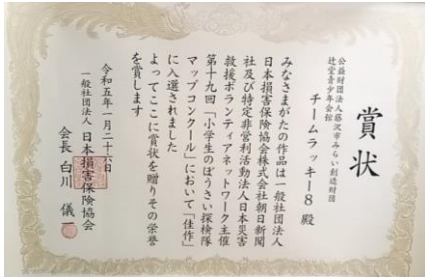 賞状
公益財団法人藤沢市みらい創造財団
辻堂青少年会館
チームラッキー8 殿
みなさまがたの作品は一般社団法人
日本損害保険協会株式会社朝日新聞
社及び特定非営利活動法人日本災害
救援ボランティアネットワーク主催
第十九回「小学生のぼうさい探検隊
マップコンクール」において「佳作」
に入選されました
よってここに賞状を贈りその栄誉
を賞します
令和五年一月二十六日
一般社団法人 日本損害保険協会
会長 白川 儀